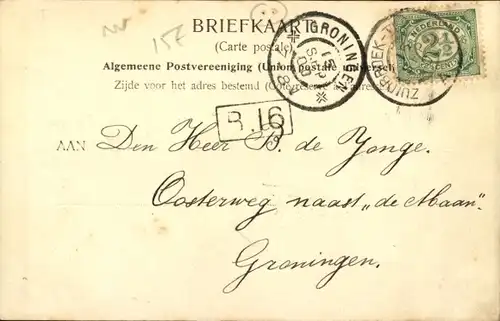 BRIEFKAART
15f
(Carte postale)
Algemeene Postvereeniging (Union postale universelle)
Zijde voor het adres bestemd (Côté réservé à l'adresse)
GRONINGEN
NEDERLAND
2½
CENT
ZUIDBROEK-T
B.16
AAN Den Heer B. de Jonge.
Oosterweg naast „de Maan"
Groningen.